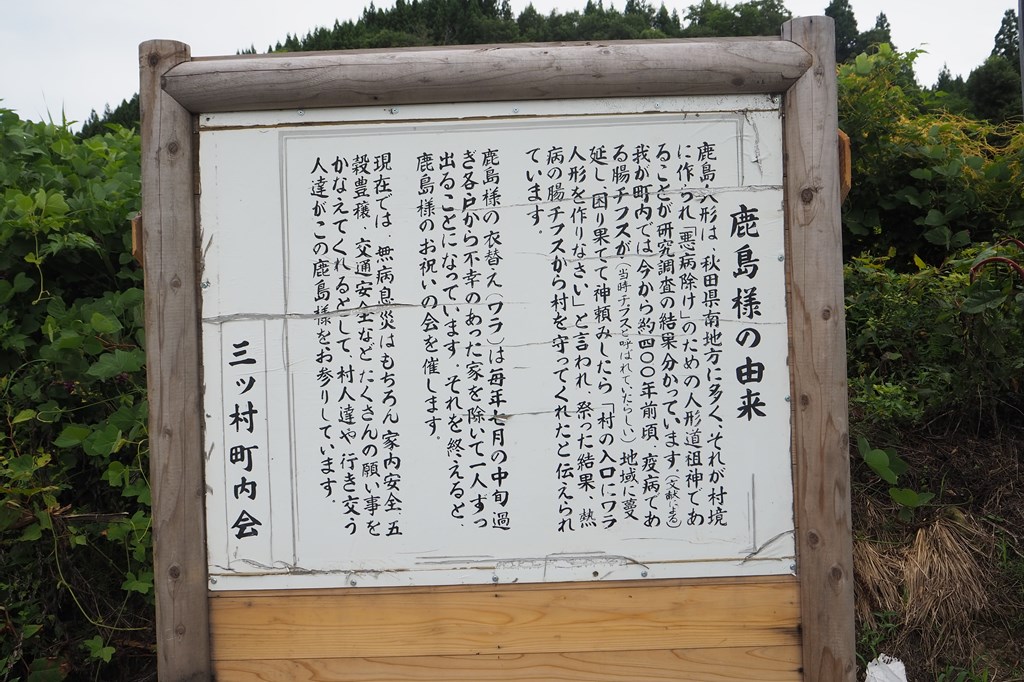 鹿島様の由来
鹿島人形は、秋田県南地方に多く、それが村境
に作られ「悪病除け」のための人形道祖神であ
ることが研究調査の結果分かっています。(文献による)
我が町内では今から約四〇〇年前頃、疫病であ
る腸チフスが(当時チフスと呼ばれていたらしい)地域に蔓
延し、困り果てて神頼みしたら「村の入口にワラ
人形を作りなさい」と言われ、祭った結果、熱
病の腸チフスから村を守ってくれたと伝えられ
ています。
鹿島様の衣替え(ワラ)は毎年七月の中旬過
ぎ各戸から不幸のあった家を除いて一人ずつ
出ることになっています。それを終えると、
鹿島様のお祝いの会を催します。
現在では、無病息災はもちろん家内安全、五
穀豊穣、交通安全などたくさんの願い事を
かなえてくれるとして、村人達や行き交う
人達がこの鹿島様をお参りしています。
三ツ村町内会